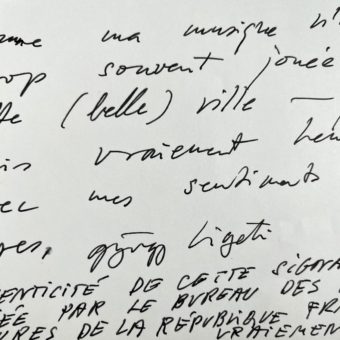 ma musique n'
rop souvent jouée
te (belle) ville —
is vraiment
ec mes sentiments
res, györgy ligeti
ENTICITÉ DE CETTE SIGNA
ÉE PAR LE BUREAU DES
URES DE LA RÉPUBLIQUE FR
VRAIEMEN